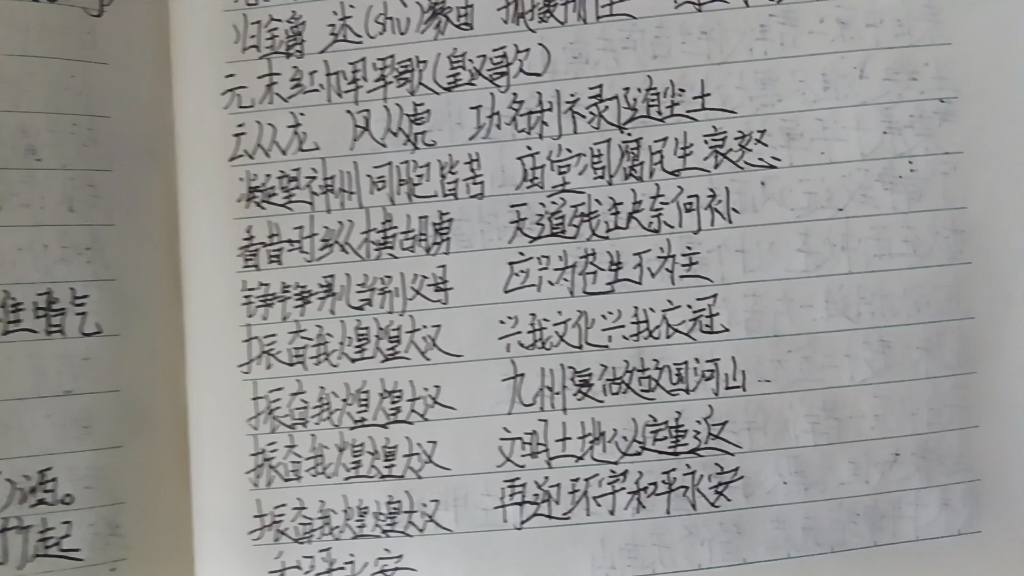 归 述(shù)缘由
元末红巾军军歌(皇汉歌)
云从龙 风从虎 功名利禄随尘土
凝望神州同胞皆苦 庙堂阁腐民生哀怒
看昔时纵横胡虏 天道残缺夫奈何补
铮铮男儿当别父母 应只为苍生不为主
振奋我煌煌大汉 兴我文化兴我衣冠
振奋我煌煌大汉 九州复做故国河山
振奋我煌煌大汉 文明土地必定重返
振奋我煌煌大汉 再迎环宇和平永安
和平永安
谁惜气
酒。
起